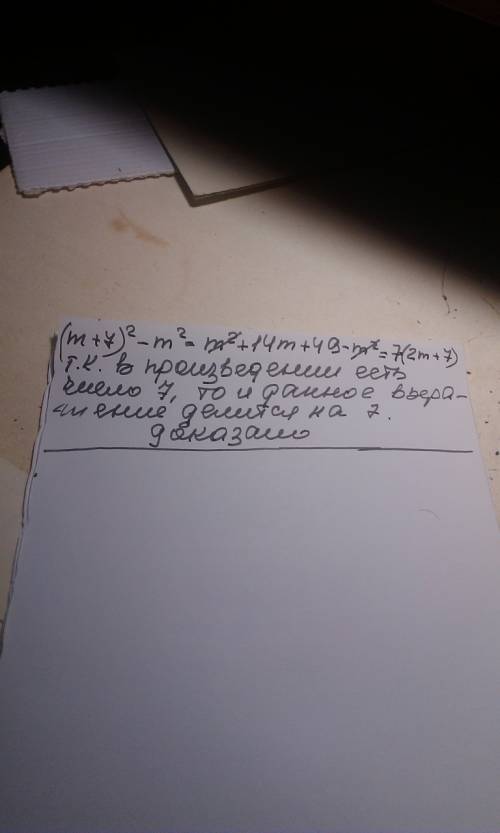 (m+7)² - m² = m² + 14m + 49 - m² = 7(2m+7)
т.к. в произведении есть
число 7, то и данное выра-
жение делится на 7.
доказано